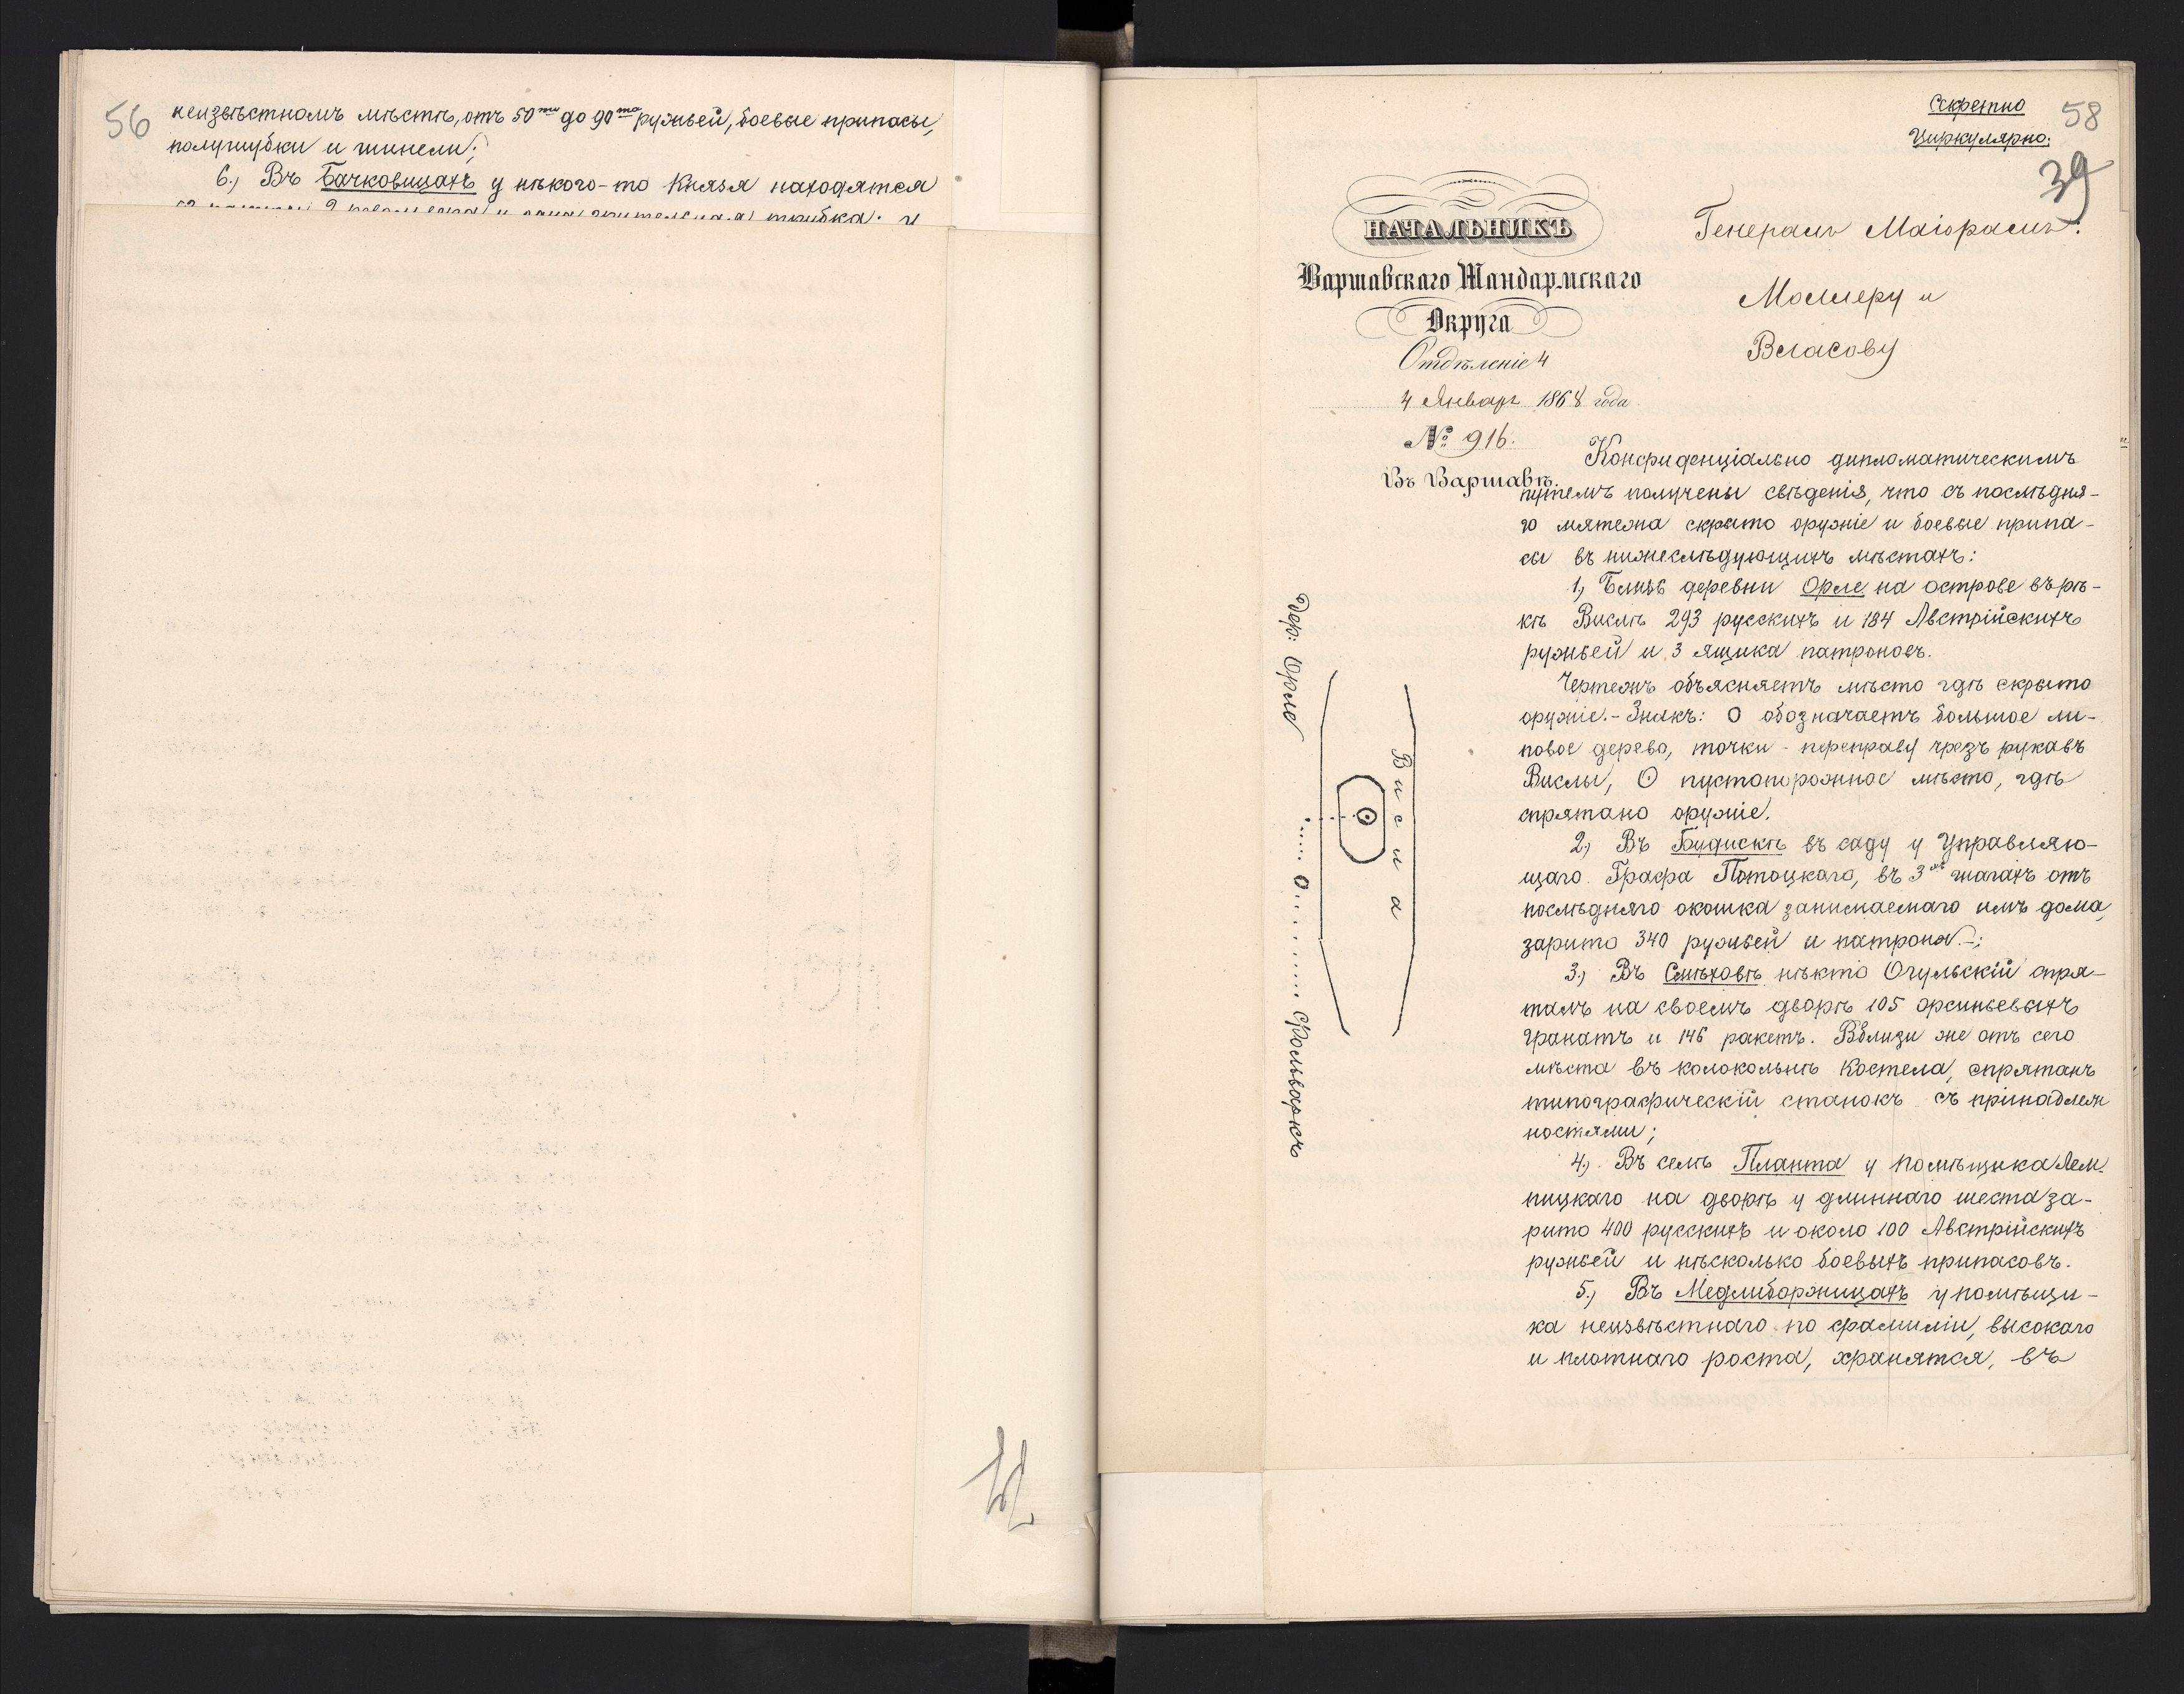 56
неизвѣстномъ мѣстѣ, отъ 50ти до 90та ружьей, боевые припасы,
полушубки и шинели;
6.) Въ Бачковицахъ у нѣкого-то Князя находятся
Секретно
Циркулярно:
58
39
НАЧАЛЬНИКЪ
Варшавскаго Жандармскаго
Округа
Отдѣленіе 4
4 Январ 1868 года
№ 916.
Въ Варшавѣ.
Генералъ Маіорамъ:
Моллеру и
Власову
Конфиденціально дипломатическимъ
путемъ получены свѣденія, что съ послѣдня-
го мятежа скрыто оружіе и боевые припа-
сы въ нижеслѣдующихъ мѣстахъ:
1.) Близь деревни Орле на острове въ рѣ-
кѣ Вислѣ 293 русскихъ и 184 Австрійскихъ
ружьей и 3 ящика патроновъ.
Чертежъ объясняетъ мѣсто гдѣ скрыто
оружіе. - Знакъ: О обозначаетъ большое ли-
повое дерево, точки - переправу чрезъ рукавъ
Вислы, О пустопорожное мѣсто, гдѣ
спрятано оружіе.
2.) Въ Будискѣ въ саду у Управляю-
щаго Графа Потоцкаго, въ 3хъ шагахъ отъ
послѣдняго окошка занимаемаго имъ дома,
зарыто 340 ружьей и патроны -;
3.) Въ Смѣховѣ нѣкто Огульскій спря-
талъ на своемъ дворѣ 105 орсиньевыхъ
гранатъ и 146 ракетъ. Вблизи же отъ сего
мѣста въ колокольнѣ Костела, спрятанъ
типографическій станокъ съ принадлеж
ностями;
4.) Въ селѣ Планта у помѣщика Лем-
пицкаго на дворѣ у длиннаго шеста за-
рыто 400 русскихъ и около 100 Австрійскихъ
ружьей и нѣсколько боевыхъ припасовъ.
5.) Въ Медлиборжицахъ у помѣщи-
ка неизвѣстнаго по фамиліи, высокаго
и плотнаго роста, хранятся, въ
Дер: Орле
Висла
О
Фольваркъ